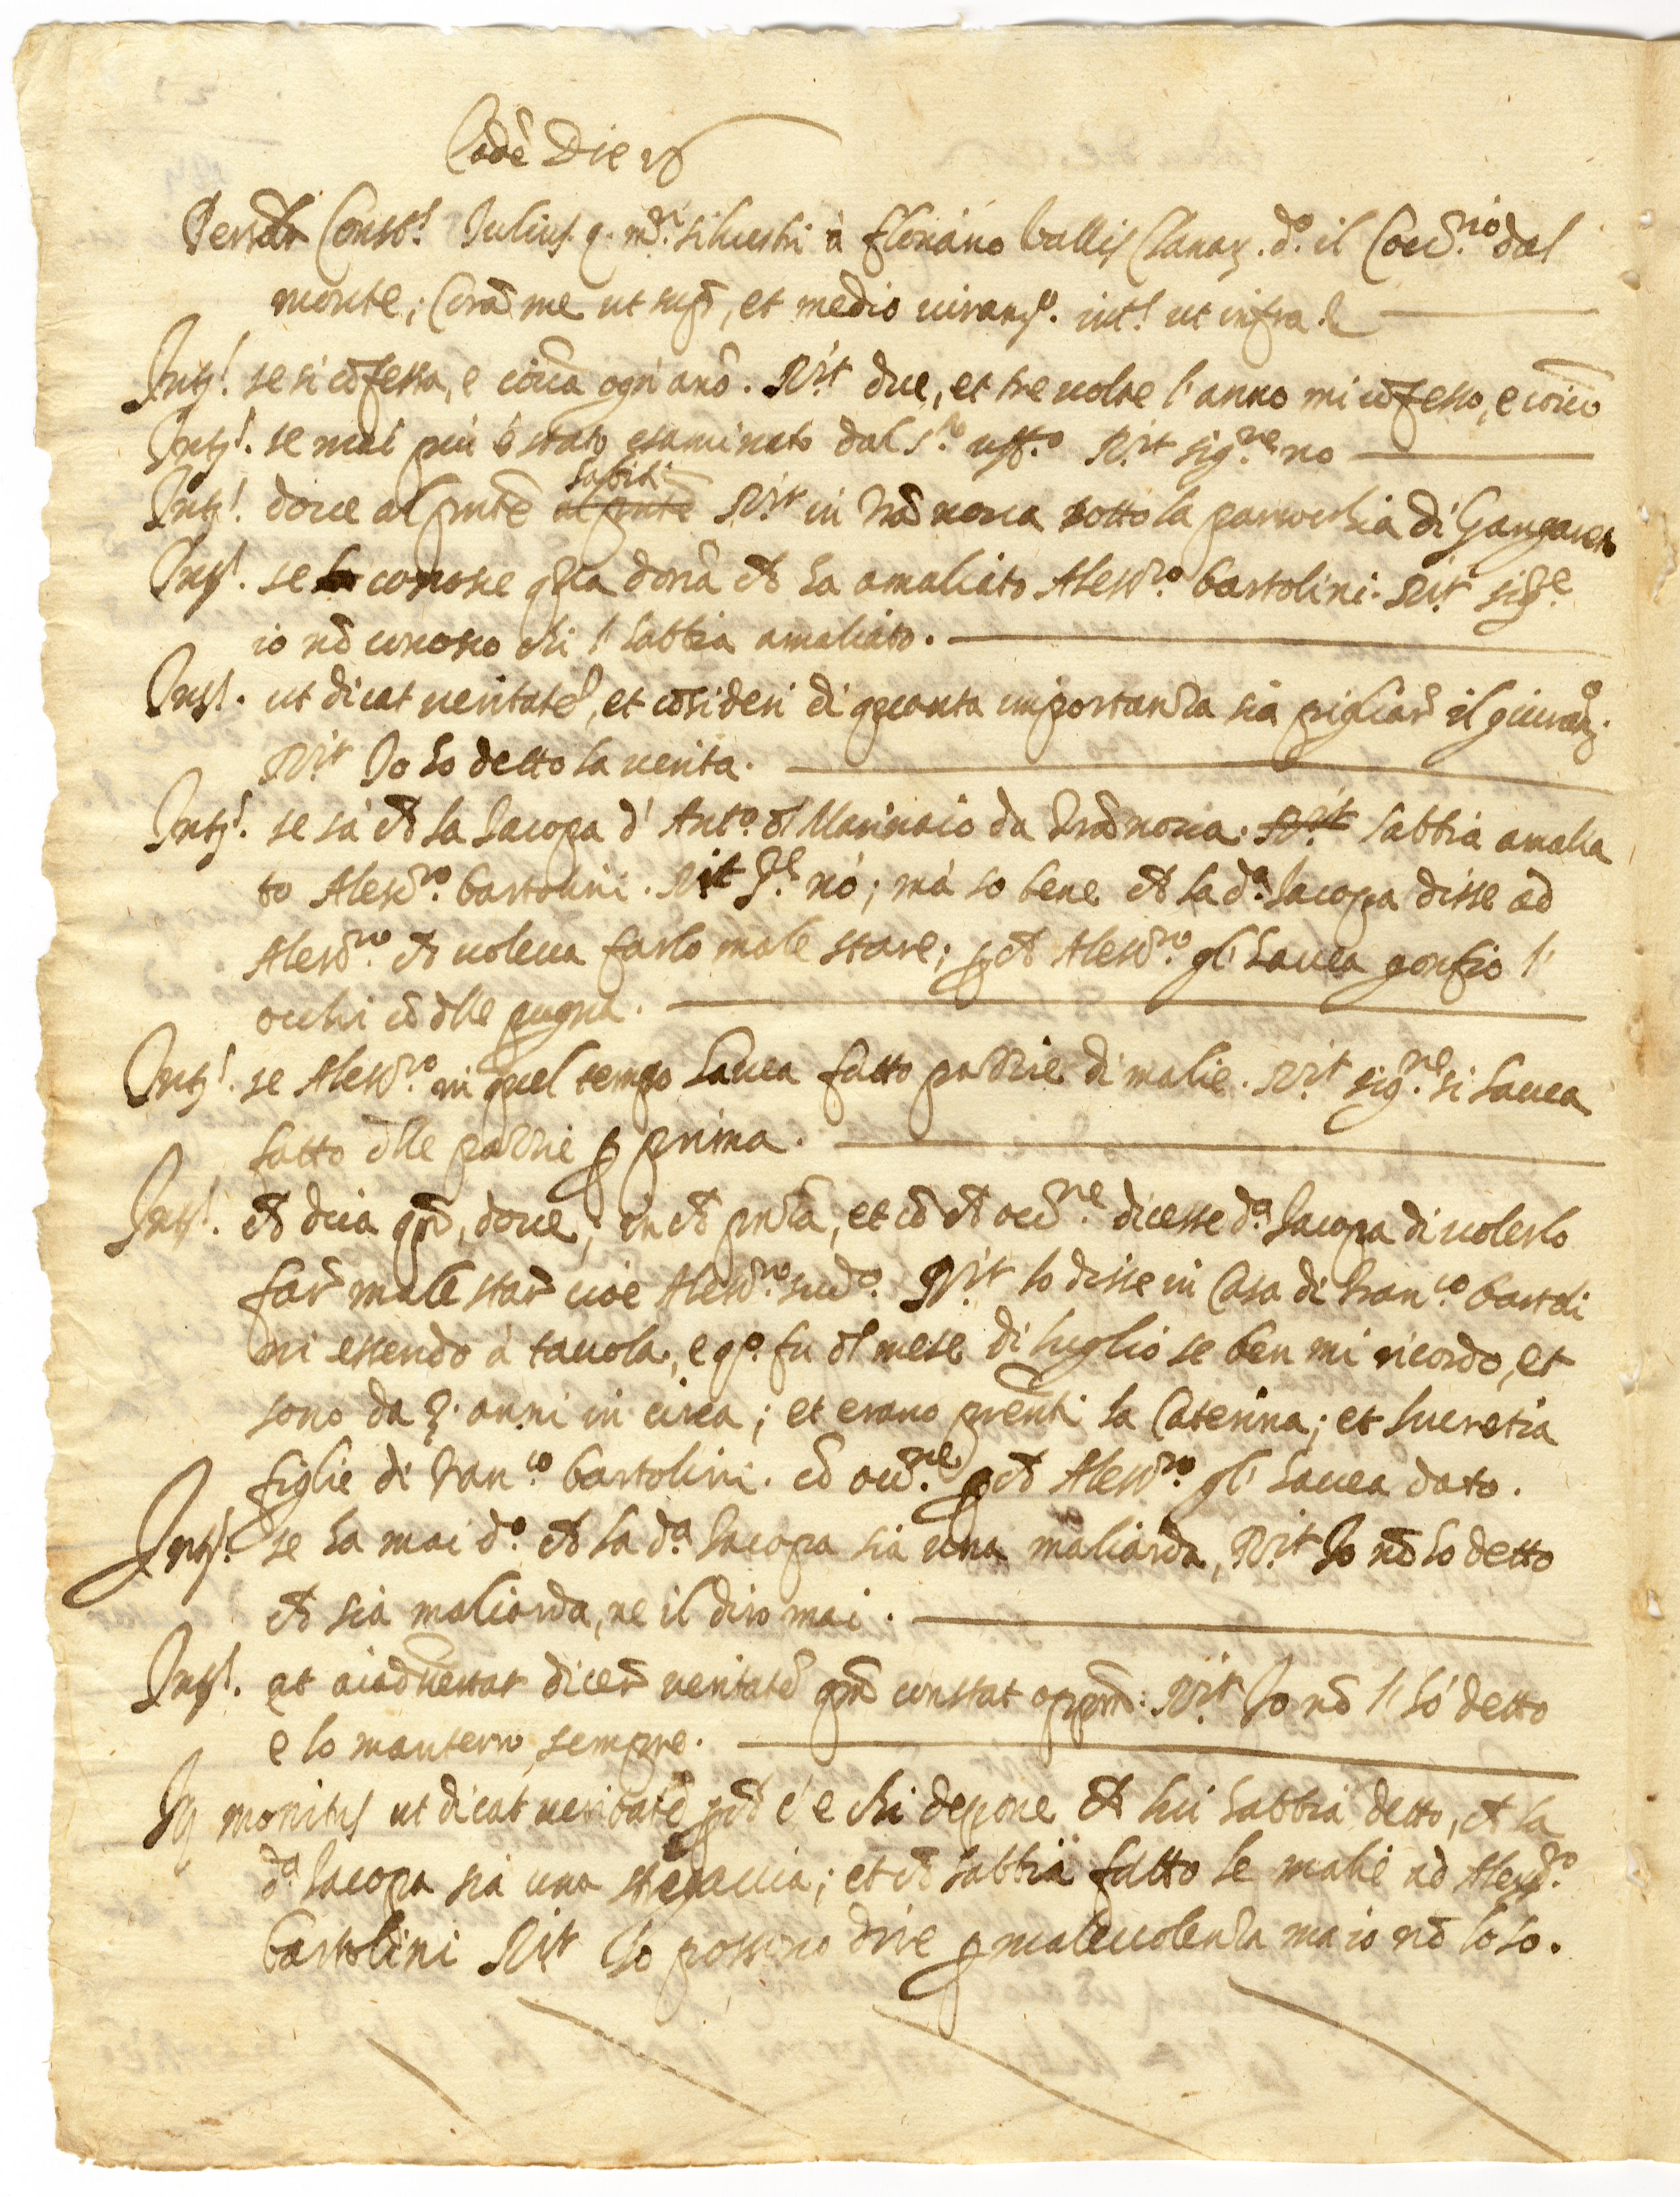 Eadē Die
Person. Const. Julius q. silvestri à floriano Vallis Clanar. d.º il dal
monte; Corā me ut supr, et medio iuram.º int.s ut infra
Int.s se si cōfessa, e coīca ogn' anō. R.it due, et tre volte l'anno mi cōfesso, e coīco
Int.s se mai piu è stato esaminato dal s.to uff.o R.it sig.re no
Int.s dove al pñte habiti R.it in sotto la parrochia di
Int.s se conosce qlca donā ch ha amaliato Aless.ro bartolini. R.it sig.re
io nō conosco chi l'habbia amaliato.
Int.s ut dicat veritatē, et cōsideri di quanta importanza sia pigliar il giuram.º
R.it Io ho detto la verita.
Int.s se sà ch la Jacopa d'Ant.o dl Marinaio da R.it habbia amalia
to Aless.ro bartolini. R.it S.re nò; mà so bene ch la d.a Jacopa disse ad
Aless.ro ch voleva farlo male stare; pch Aless.ro gl'havea gonfio l'
occhi cō dlle pugna.
Int.s se Aless.ro in quel tempo havea fatto pazzie di malie. R.it sig.re si havea
fatto dlle pazzie p prima.
Int.s ch dica qñ, dove, in ch pñza, et cō ch occ.ne dicesse d.a Jacopa di volerlo
far male star cioe Aless.ro sud.o R.it lo disse in Casa di Fran.co bartoli
ni essendo à tavola, e q.o fu dl mese di luglio se ben mi ricordo, et
sono da 3. anni in circa; et erano preñti la Caterina; et lucretia
figlie di Fran.co bartolini. cō occ.ne pch Aless.ro gl'havea dato.
Int.s se ha mai d.o ch la d.a Jacopa sia una maliarda, R.it Io nō ho detto
ch sia maliarda, ne il diro mai.
Int.s at dicer veritatē qm constat oppm: R.it Io nō l'hò detto
e lo manterrò sempre.
Itq monitus ut dicat veritatē pch c'è chi depone ch lui habbia detto, ch la
d.a Jacopa sia una stregaccia; et ch habbia fatto le malie ad Aless.o
bartolini R.it lo possono dire p malevolenza ma io nō lo so.